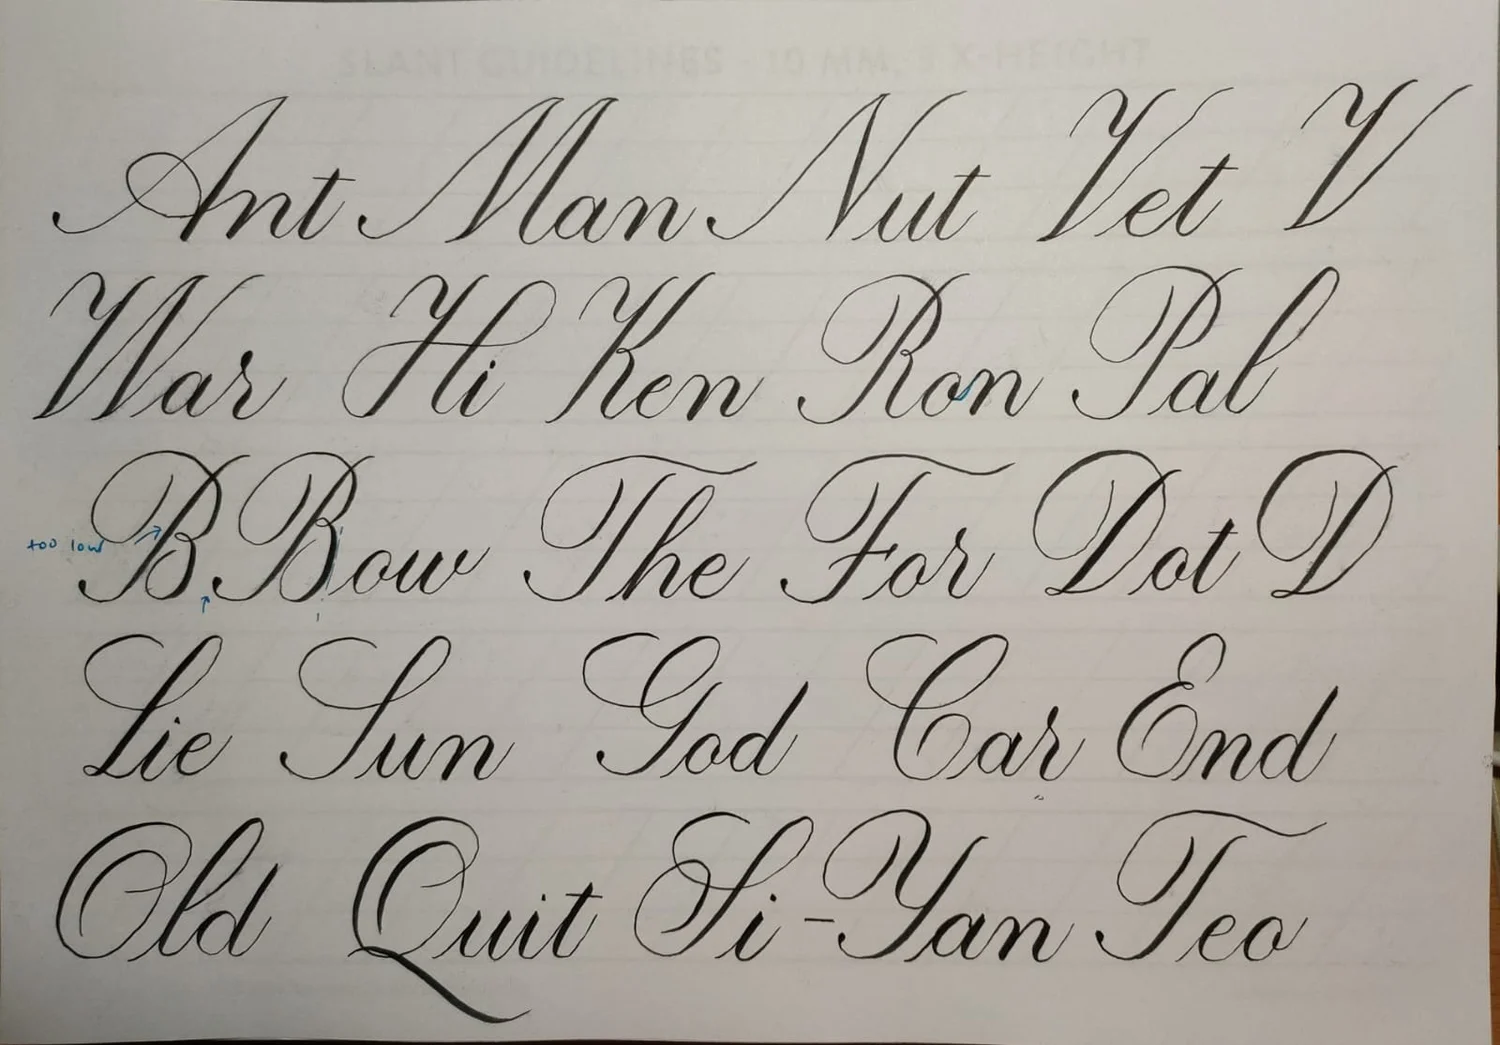 SLANT GUIDELINES - 10 MM, 3 X-HEIGHT
Ant Man Nut Vet V
War Hi Ken Ron Pal
B Bow The For Dot D
too low
Lie Sun God Car End
Old Quit Si-Yan Teo